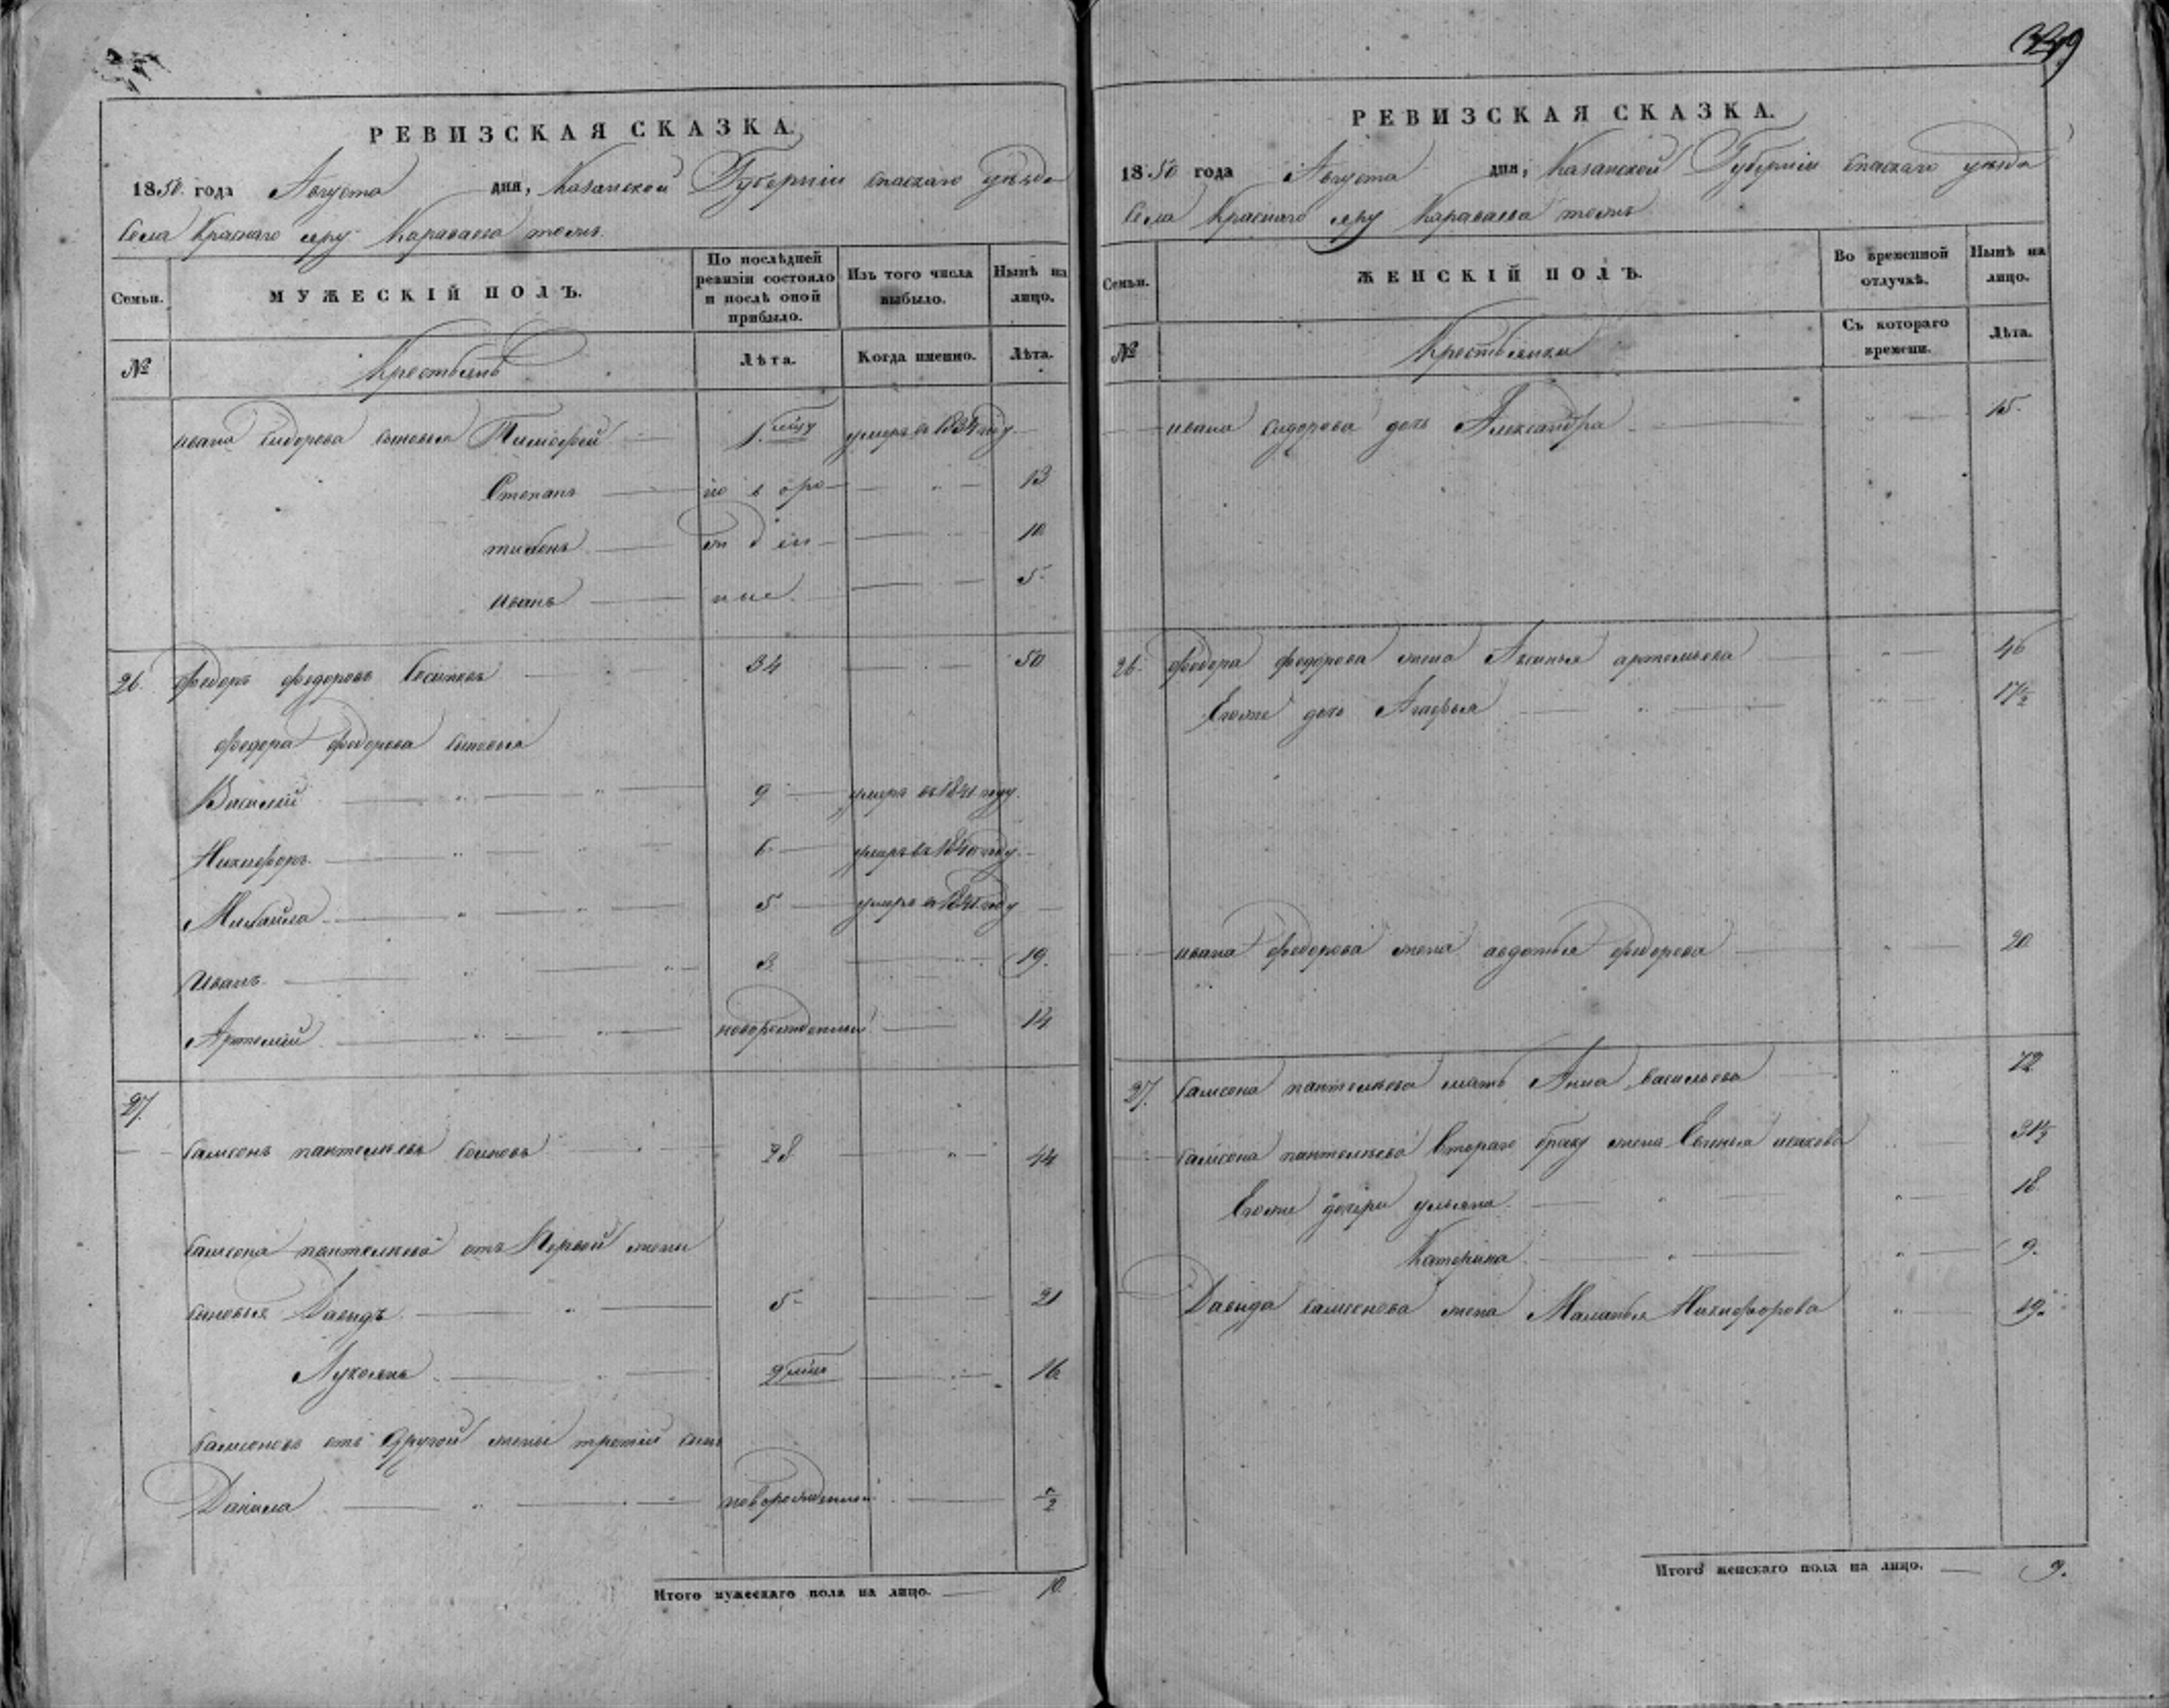 РЕВИЗСКАЯ СКАЗКА.
1850. года Августа дня, Казанской Губернии Спаскаго уезда
Села Краснаго яру Караваева тожъ.
Семьи. МУЖЕСКІЙ ПОЛЪ. По послѣдней ревизіи состояло и послѣ оной прибыло. Изъ того числа выбыло. Нынѣ на лицо.
№ Крестьянъ Лѣта. Когда именно. Лѣта.
ивана Сидорова сыновья Тимофей умеръ в 1834 году
Степанъ 13
тихонъ 10
иванъ 5.
26. федоръ федоровъ 34 50
федора федорова сыновья
Василий 9 умеръ въ 1841 году.
Никифоръ 6. умеръ въ 1840 году.
Михайла 5 умеръ в 1841 году
Иванъ 3. 19.
Артемий новорожденный 14
27.
самсонъ пантелеевъ 28 44
самсона пантелеева отъ Первой жены
сыновья Давидъ 5 21
Лукоянъ 16
самсоновъ отъ другой жены третий сынъ
Данила новорожденный ½
Итого мужескаго пола на лицо. 10.
РЕВИЗСКАЯ СКАЗКА.
1850 года Августа дня, Казанской Губернии Спаскаго уезда
Села Краснаго яру Караваева тожъ
Семьи. ЖЕНСКІЙ ПОЛЪ. Во временной отлучкѣ. Нынѣ на лицо.
№ Крестьянки Съ котораго времени. Лѣта.
ивана сидорова дочь Александра 15.
26. федора федорова жена Аксинья артемьева 46
Егоже дочь Агафья 17½
ивана федорова жена авдотья федорова 20
27. самсона пантелеева мать Анна васильева 72
самсона пантелеева втораго браку жена 31½
Егоже дочери ульяна. 18.
Катерина. 9.
Давида самсонова жена Маланья Никифорова 19.
Итого женскаго пола на лицо. 9.